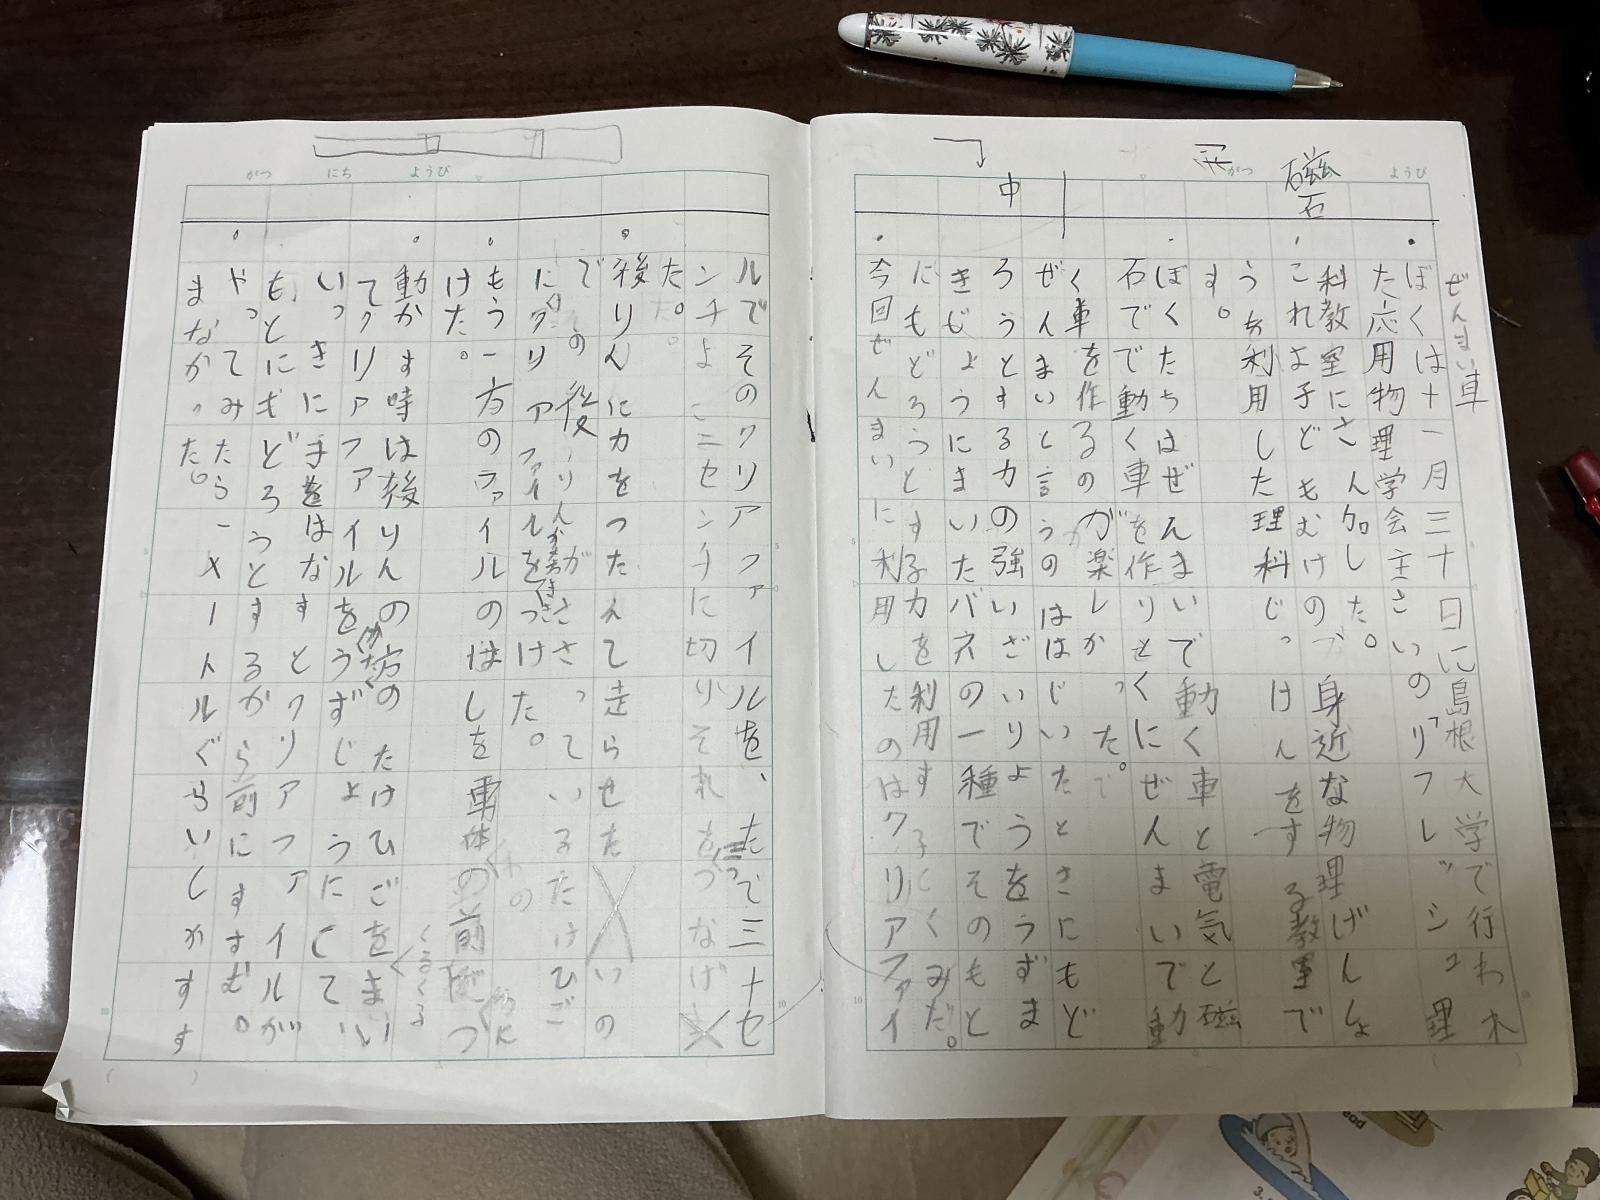 ぜんまい車
ぼくは十一月三十日に島根大学で行われ
た応用物理学会主さいの「リフレッシュ理
科教室にさん加した。
これは子どもむけの身近な物理げんしょ
うを利用した理科じっけんをする教室で
す。
ぼくたちはぜんまいで動く車と電気と磁
石で動く車を作りとくにぜんまいで動
く車を作るのが楽しかった。
ぜんまいと言うのははじいたときにもど
ろうとする力の強いざいりょうをうずま
きじょうにまいたバネの一種でそのもと
にもどろうとする力を利用するしくみだ。
今回ぜんまいに利用したのはクリアファイ
ルでそのクリアファイルを、たて三十セ
ンチよこ二センチに切りそれを二つつなげ
た。
後りんに力をつたえて走らせた
いので
その後りんがささっているたけひご
にクリアファイルをつけた。
もう一方のファイルのはしを車体の前につ
けた。
動かす時は後りんの方のたけひごをまい
てクリアファイルをうずじょうにしてい
いっきに手をはなすとクリアファイルが
もとにもどろうとするから前にすすむ。
やってみたら一メートルぐらいしかすす
まなかった。
磁石
中
がつ
ようび
がつ
にち
ようび
くるくる